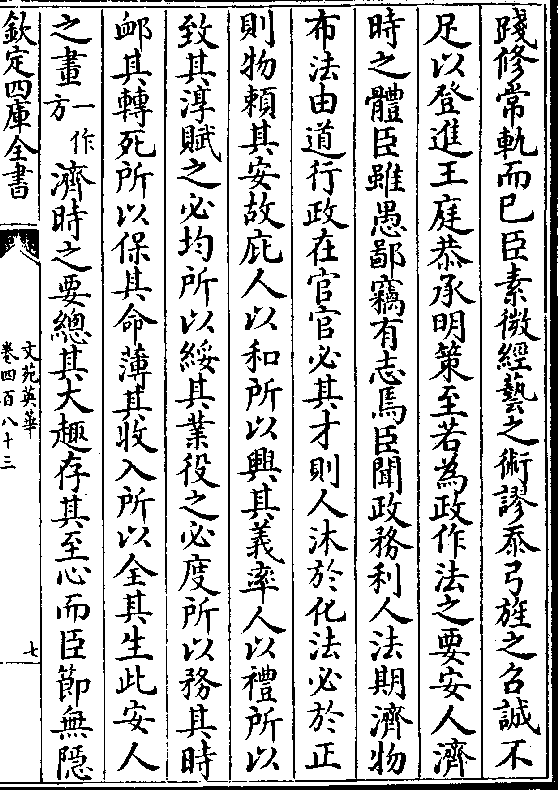 踐修常軌而已臣素微經藝之術謬忝弓旌之召誠不
足以登進王庭恭承明策至若為政作法之要安人濟
時之體臣雖愚鄙竊有志焉臣聞政務利人法期濟物
布法由道行政在官官必其才則人沐於化法必於正
則物賴其安故庇人以和所以興其義率人以禮所以
致其淳賦之必均所以綏其業役之必度所以務其時
卹其轉死所以保其命薄其收入所以全其生此安人
之畫一作方濟時之要總其大趣存其至心而臣節無隱
欽定四庫全書
文苑英華
卷四百八十三
七